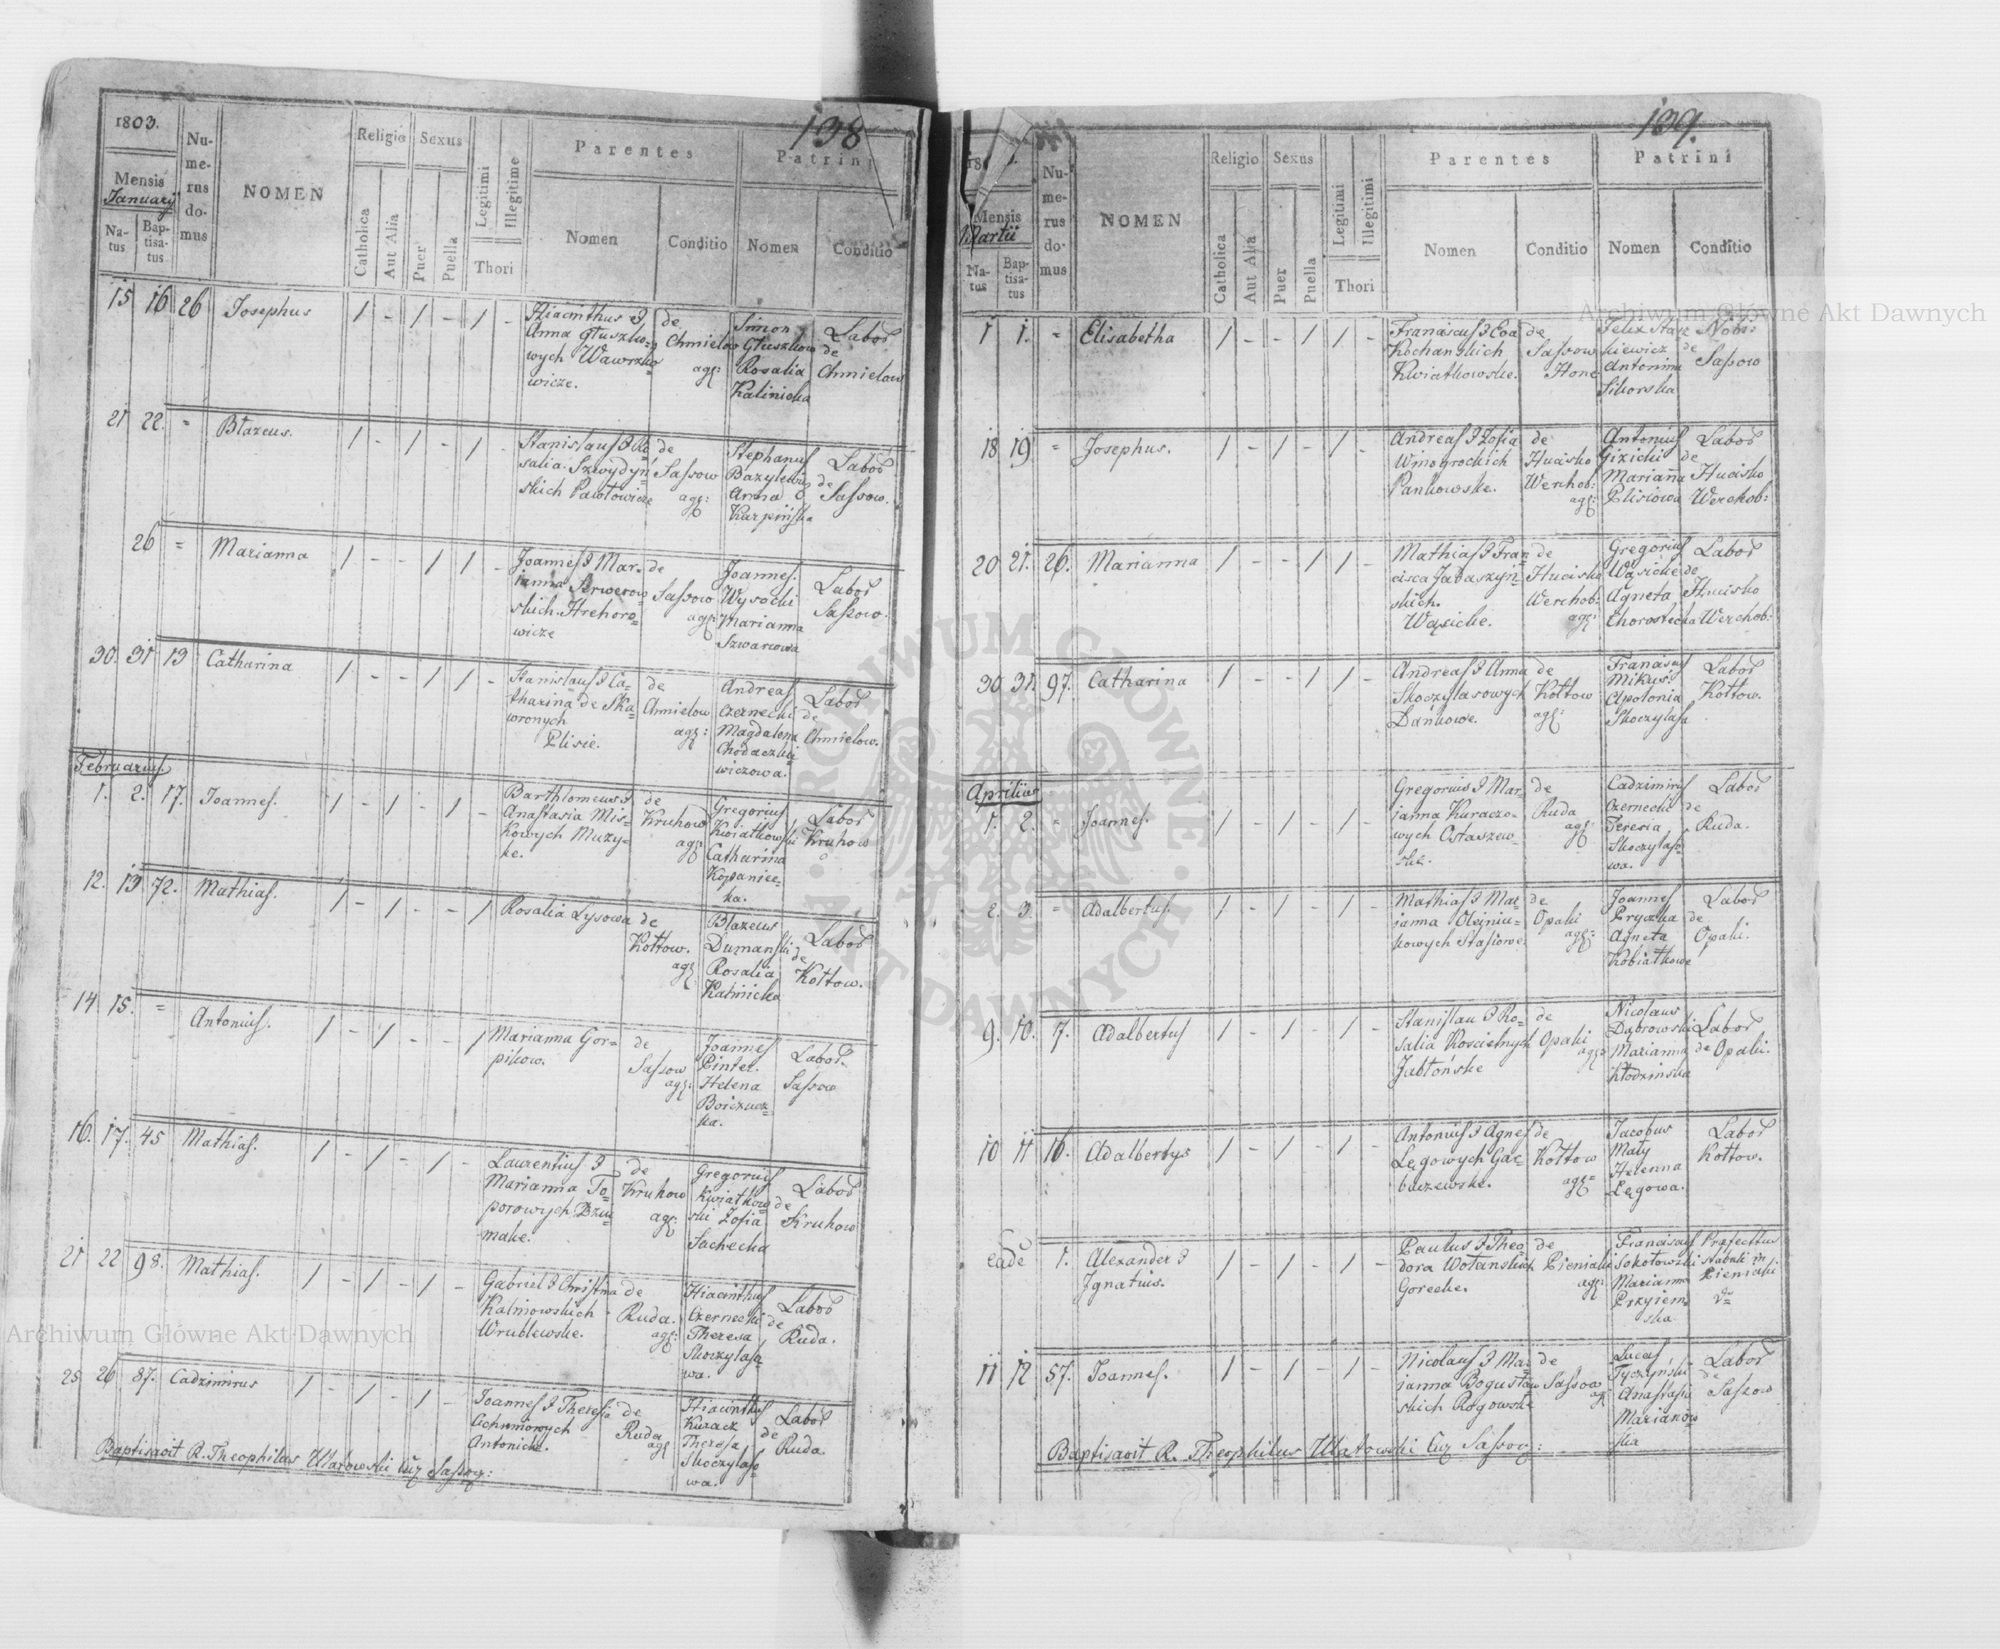 138
1803.
Mensis
Januarij
Na-
tus
Bap-
tisa-
tus
Nu-
me-
rus
do-
mus
NOMEN
Religio
Catholica
Aut Alia
Sexus
Puer
Puella
Legitimi
Illegitime
Thori
Parentes
Nomen
Conditio
Patrini
Nomen
Conditio
15 16 26 Josephus / - / - / -
Hiacinthus &
Anna Głuszko=
wych Wawrzko=
wicze.
de
Chmielow
agr:
Simon
Głuszkow
Rosalia
Kalinicka
Labor
de
Chmielow
21 22. = Błazeus. / - / - / -
Stanislaus & Ro=
salia Szwydyń=
skich Pawłowicze
de
Sassow
agr:
Stephanus
Bazylewicz
Anna
Karpińska
Labor
de
Sassow.
26 = Marianna / - - / / -
Joannes & Mar=
ianna
skich Hrehoro=
wicze
de
Sassow
agr:
Joannes
Wysocki
Marianna
Szwarcowa
Labor
Sassow.
30. 31 13 Catharina / - - / / -
Stanislaus & Ca=
tharina de Ska=
wronych
Plisie.
de
Chmielow
agr:
Andreas
Czernecki
Magdalena
Chodaczke
wiczowa.
Labor
de
Chmielow.
Februarius.
1. 2. 17. Joannes. / - / - / -
Barthlomeus &
Anastasia Mis=
kowych Muzy=
ke.
de
Kruhow
agr:
Gregorius
Kwiatkowski
Catharina
Kopaniec=
ka.
Labor
Kruhow
12. 13 72. Mathias. / - / - - /
Rosalia Lysowa
de
Kołtow.
agr:
Blazeus
Dumanski
Rosalia
Kalnicka
Labor
de
Kołtow.
14 15. = Antonius. / - / - - /
Marianna Gor=
pikow.
de
Sassow
agr:
Joannes
Pinter.
Helena
Boiczucz=
ka.
Labor.
Sassow
16. 17. 45 Mathias. / - / - / -
Laurentius &
Marianna To=
porowych Dziu=
make.
de
Kruhow
agr:
Gregorius
Kwiatkow=
ski Zofia
Sachecka
Labor
de
Kruhow
21 22 98. Mathias. / - / - / -
Gabriel & Christina
Kalniowskich
Wrublewske.
de
Ruda.
agr:
Hiacinthus
Czernecki
Theresa
Skoczylaso=
wa.
Labor
de
Ruda.
25 26 87. Cadzimirus / - / - / -
Joannes & Theresia
Antonicke.
de
Ruda
agr
Hiacinthus
Kuracz
Theresa
Skoczylaso=
wa.
Labor
de
Ruda.
Baptisavit R. Theophilus Ularowski Cur Sassov:
139.
Mensis
Martii
Na-
tus
Bap-
tisa-
tus
Nu-
me-
rus
do-
mus
NOMEN
Religio
Catholica
Aut Alia
Sexus
Puer
Puella
Legitimi
Illegitimi
Thori
Parentes
Nomen
Conditio
Patrini
Nomen
Conditio
1 1. = Elisabetha / - - / / -
Franciscus & Eva
Kochanskich
Kwiatkowske.
de
Sassow
Hone
Felix Stasz
kiewicz
Antonina
Sikorska
Nobi:
de
Sassow
18 19 = Josephus. / - / - / -
Andreas & Zofia
Winogrockich
Pankowske.
de
Hucisko
Werchob:
agr:
Antonius
Gizicki
Marianna
Plisiowa
Labor
de
Hucisko
Werchob:
20 21. 26. Marianna / - - / / -
Mathias & Fran
cisca Jabaszyń=
skich.
Wąsicke.
de
Hucisko
Werchob:
agr:
Gregorius
Wąsicki
Agneta
Chorostecka
Labor
de
Hucisko
Werchob:
30 31. 97. Catharina / - - / / -
Andreas & Anna
Skoczylasowych
Dańkowe.
de
Kołtow
agr:
Franciscus
Mikus.
Apolonia
Skoczylas
Labor
Kołtow.
Aprilius
1. 2. = Joannes. / - / - / -
Gregorius & Mar=
janna Kuraczo=
wych Ostaszew=
ske.
de
Ruda
agr:
Cadzimirus
Czernecki
Teresia
Skoczylaso=
wa.
Labor
de
Ruda.
2. 3. = Adalbertus. / - / - / -
Mathias & Mar
janna Olejniu=
kowych Stasiowe
de
Opaki
agr:
Joannes
Pryczka
Agneta
Kobiatkowe
Labor
de
Opaki.
9. 10. 7. Adalbertus / - / - / -
Stanislau & Ro=
salia Koscielnych
Jabłońske
de
Opaki
agr:
Nicolaus
Dąbrowski
Marianna
Kłodzinska
Labor
de Opaki.
10 11 16. Adalbertys / - / - / -
Antonius & Agnes
Lęgowych Gar=
baczewske.
de
Kołtow
agr=
Jacobus
Mały
Helenna
Lęgowa.
Labor
Kołtow.
eadē 1. Alexander &
Ignatius. / - / - / -
Paulus & Theo
dora Wolanskich
Gorecke.
de
Pieniaki
agr:
Franciscus
Sokołowski
Marianna
Przyiem=
ska
Præfectus
stabuli in
Pieniaki
11 12 57. Joannes. / - / - / -
Nicolaus & Mar
janna Bogusław
skich Rogowske
de
Sassow
agr
Lucas
Tyczyński
Anastasia
Marianow
ska
Labor
de
Sassow
Baptisavit R. Theophilus Ulatowski Cur Sassov:
Archiwum Główne Akt Dawnych
Archiwum Główne Akt Dawnych
ARCHIWUM GŁÓWNE
AKT DAWNYCH